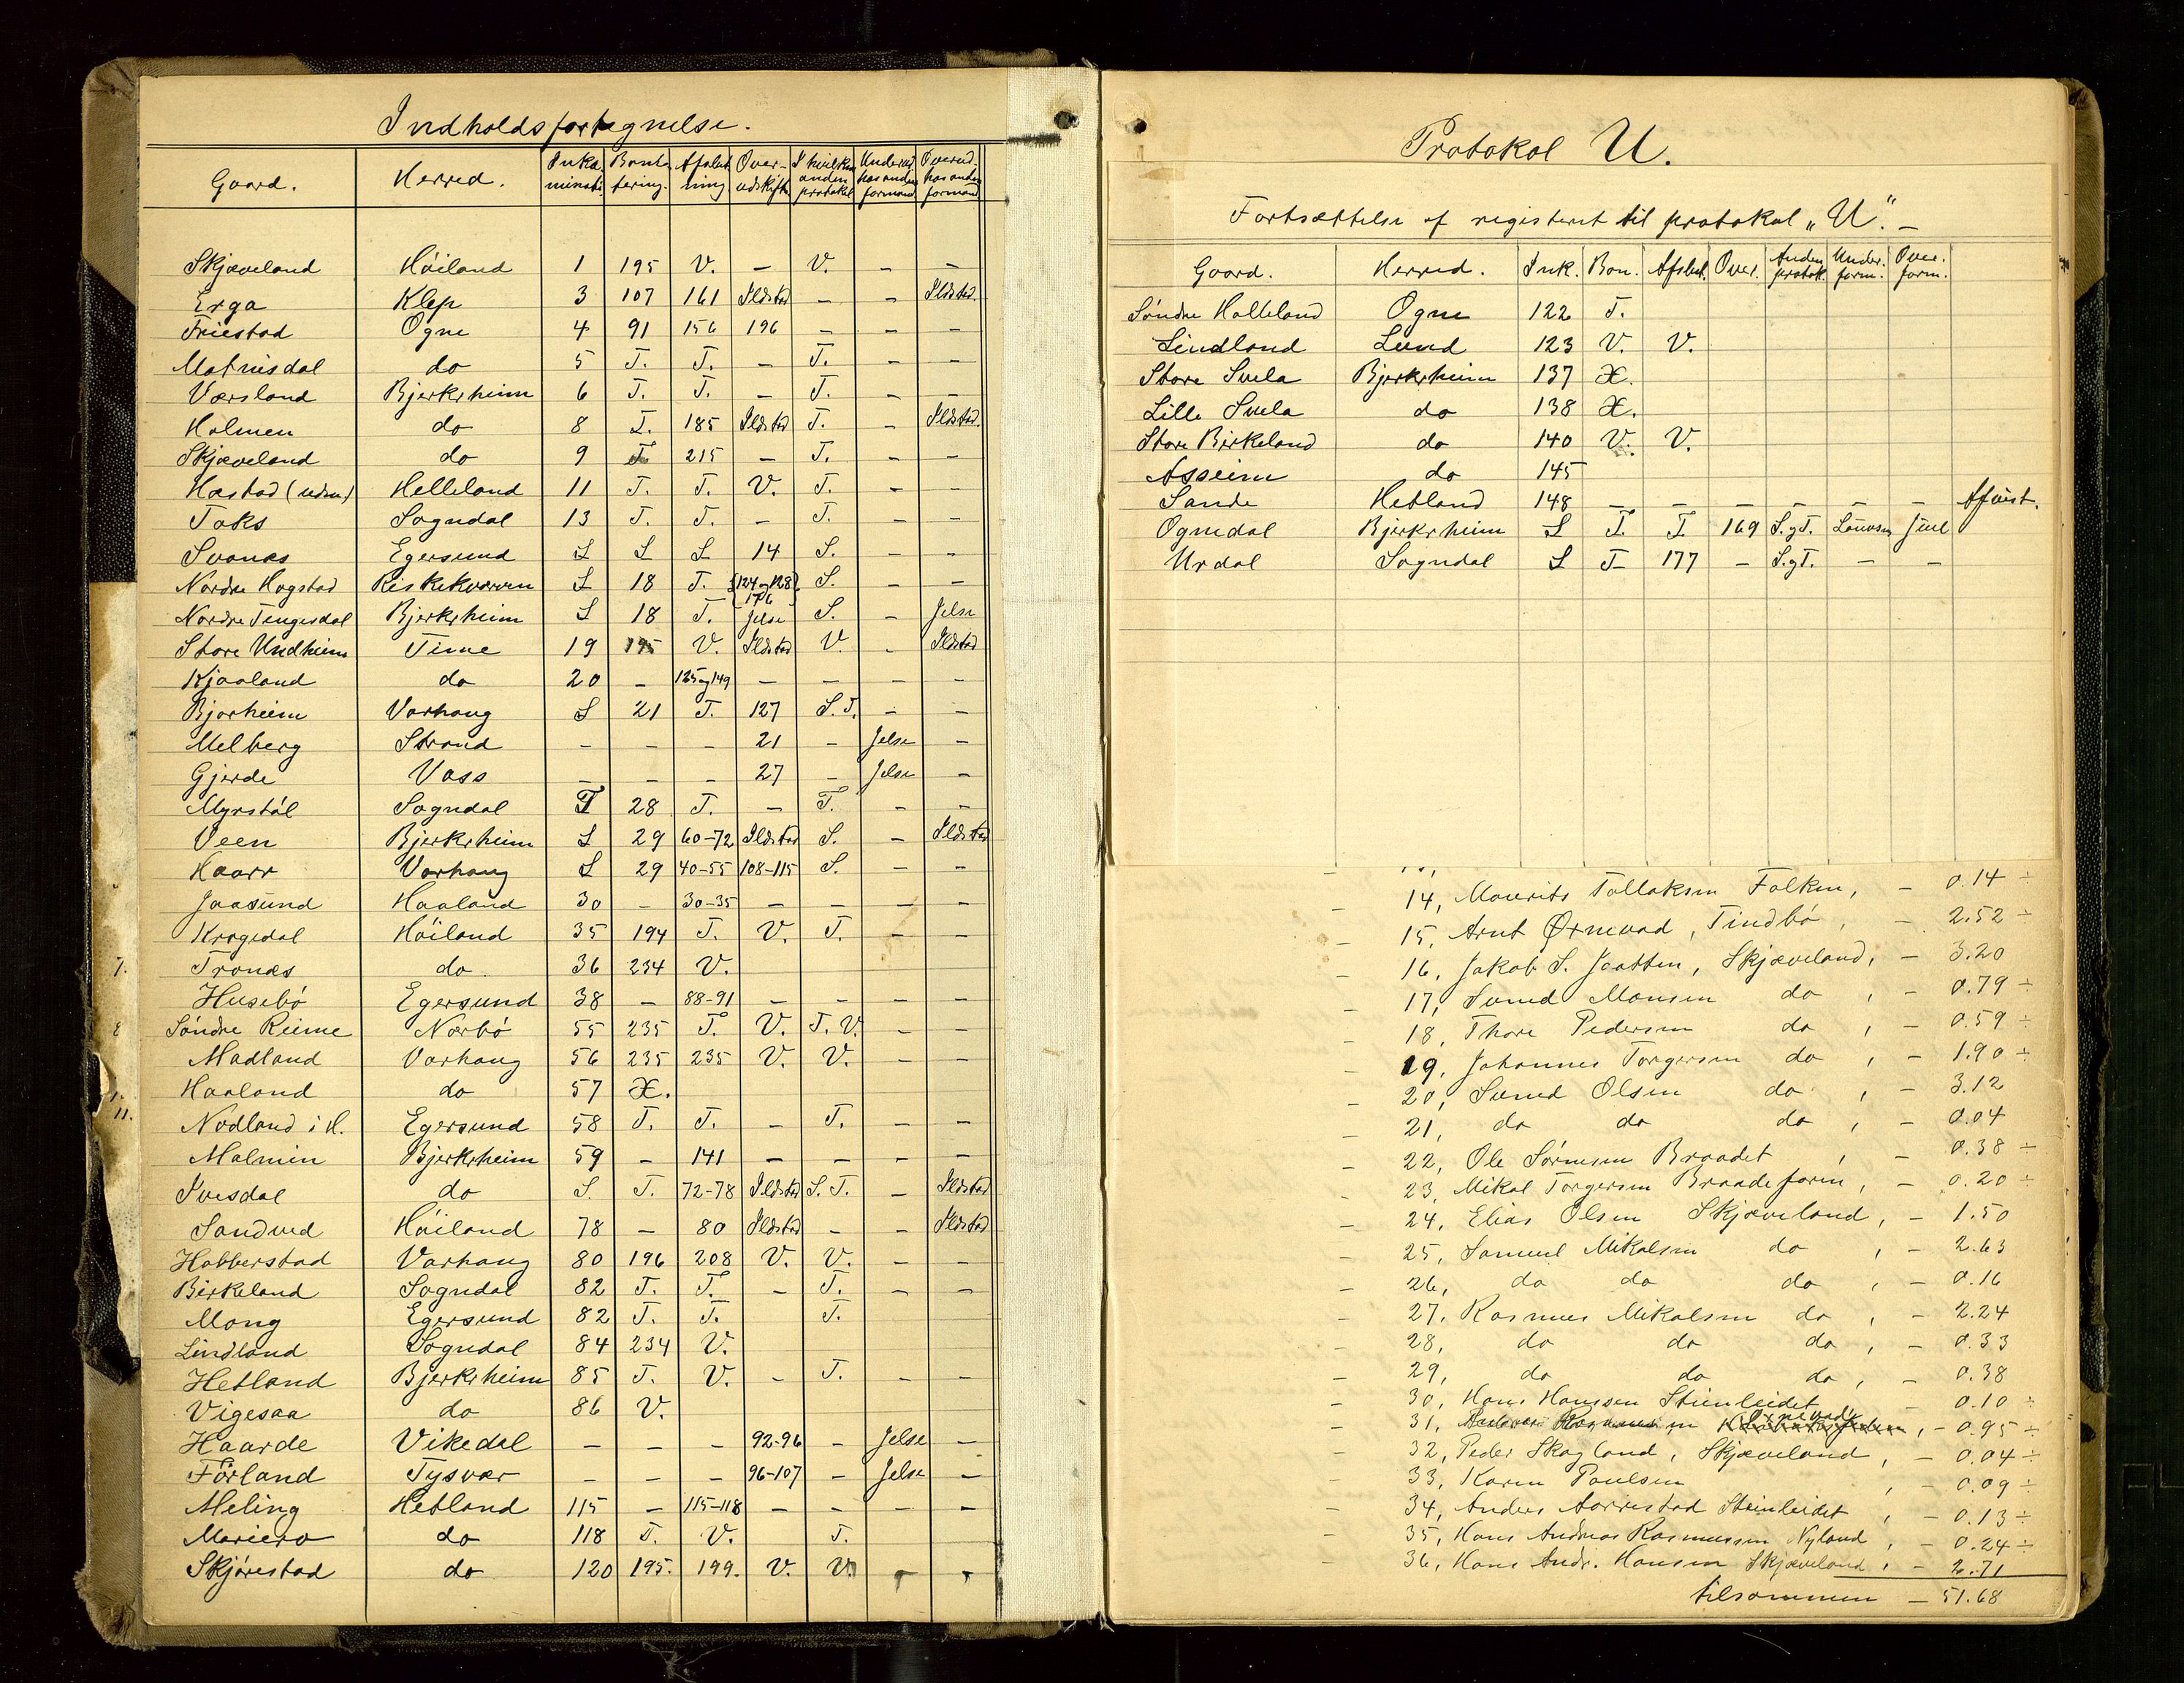 Indholdsfortegnelse.
Gaard. Herred. Inka minati. Bonitering. Afslutning. Overudskiftn. I hvilken anden protokol Underud hos anden formand Overud. hos anden formand
Skjæveland Höiland 1 195 V. – V. – –
Erga Klep 3 107 161 Ildstad – – Ildstad.
Friestad Ogne 4 91 156 196 – – –
Matnisdal do 5 T. T. – T. – –
Værsland Bjerkrheim 6 T. T. – T. – –
Holmen do 8 T. 185 Ildstad T. – Ildstad.
Skjæveland do 9 T 215 – T. – –
Hæstad (udm) Helleland 11 T. T. V. T. – –
Toks Sogndal 13 T. T. – T. – –
Svanæs Egersund S S S 14 S. – –
Nordre Hogstad Riskekværven S 18 T. {124 og 128} 176 S. – –
Nordre Tengesdal Bjerkrheim S 18 T. Jelse S. – Jelse
Store Undheim Time 19 195 V. Ildstad V. – Ildstad
Kjaaland do 20 – 125 og 149 – – – –
Bjorheim Varhaug S 21 T. 127 S.T. – –
Melberg Strand – – – 21 – Jelse –
Gjerde Vass – – – 27 – Jelse –
Myrstöl Sogndal T 28 T. – T. – –
Veen Bjerkrheim S 29 60-72 Ildstad S. – Ildstad
Haarr Varhaug S 29 40-55 108-115 S. – –
Jaasund Haaland 30 – 30-35 – – – –
Krogedal Höiland 35 194 T. V. T. – –
7. Tronæs do 36 234 V.
Husebö Egersund 38 – 88-91 – – – –
8 Söndre Reime Nærbö 55 235 T. V. T.V. – –
Madland Varhaug 56 235 235 V. V. – –
Haaland do 57 Æ.
11. Nodland i H. Egersund 58 T. T. – T. – –
Malmin Bjerkrheim 59 – 141 – – – –
Ivesdal do S. T. 72-78 Ildstad S.T. – Ildstad
Sandved Höiland 78 – 80 Ildstad – – Ildstad
Habberstad Varhaug 80 196 208 V. V. – –
Birkeland Sogndal 82 T. T. – T. – –
Mong Egersund 82 T. T. T.
Lindland Sogndal 84 234 V.
Hetland Bjerkrheim 85 T. V. – T. – –
Vigesaa do 86 V.
Haarde Vikedal – – – 92-96 – Jelse –
Förland Tysvær – – – 96-107 – Jelse –
Meling Hetland 115 – 115-118 – – – –
Mariero do 118 T. V. T.
Skjörestad do 120 195. 199. V. V. – –
Protokol U.
Fortsættelse af registeret til protokol „U". –
Gaard. Herred. Ink. Bon. Afslut. Over. Anden protok. Under. form. Over. form.
Söndre Halleland Ogne 122 T.
Lindland Lund 123 V. V.
Store Svela Bjerkrheim 137 Æ.
Lille Svela do 138 Æ.
Store Birkeland do 140 V. V.
Asseim do 145
Sande Hetland 148 – – – – – – Afvist.
Ognedal Bjerkrheim S T. T 169 S.gT. Juul
Urdal Sogndal S T 177 – S.gT. – –
– 14, Mourits Tollaksen Falken, – 0.14 ÷
– 15, Arnt Ørnevad, Tindbö, – 2.52 ÷
– 16, Jakob S. Jaatten, Skjæveland, – 3.20
– 17, Svend Monsen do, – 0.79 ÷
– 18, Thore Pedersen do, – 0.59 ÷
– 19, Johannes Torgersen do, – 1.90 ÷
– 20, Svend Olsen do, – 3.12
– 21, do do do, – 0.04
– 22, Ole Sörensen Braadet, – 0.38 ÷
– 23, Mikal Torgersen Braadeform, – 0.20 ÷
– 24, Elias Olsen Skjæveland, – 1.50
– 25, Samuel Mikalsen do, – 2.63
– 26, do do do, – 0.16
– 27, Rasmus Mikalsen do, – 2.24
– 28, do do do, – 0.33
– 29, do do do, – 0.38
– 30, Hans Hanssen Stenleidet – 0.10 ÷
– 31, – 0.95 ÷
– 32, Peder Skagland, Skjæveland, – 0.04 ÷
– 33, Karen Paulsen, – 0.09 ÷
– 34, Anders Aarrestad Stenleidet, – 0.13 ÷
– 35, Hans Andreas Rasmussen Nyland, – 0.24 ÷
– 36, Hans Andr. Hansen Skjæveland, – 2.71
tilsammen – 51.68